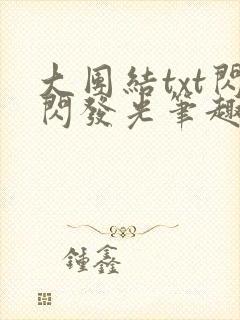 大團結txt閃
閃發光筆趣
鍾鑫